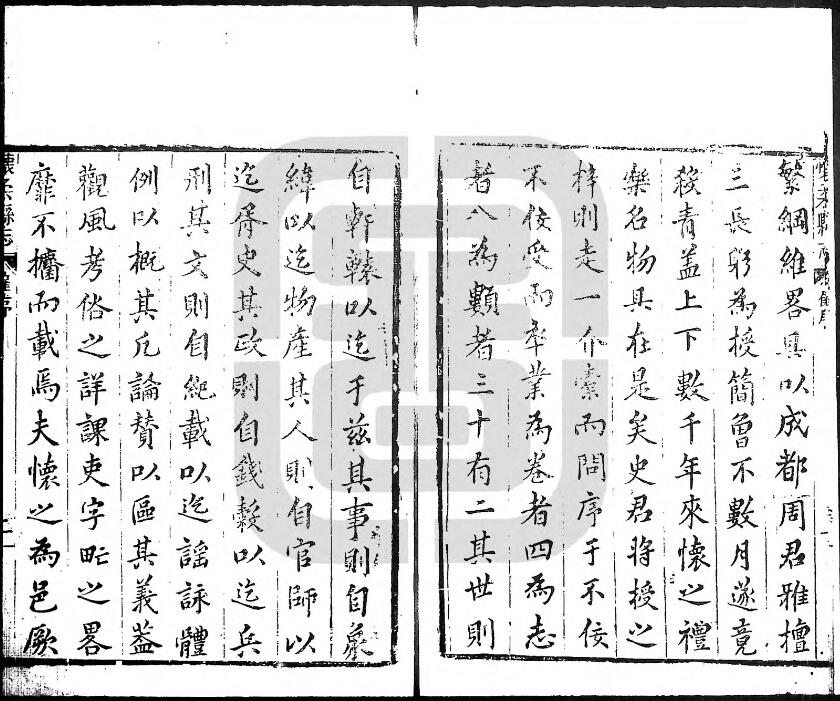 繁綱維畧具以成都周君雅擅
三長躬為授簡曾不數月遂竟
殺青盖上下數千年來懷之禮
樂名物具在是矣史君將授之
梓則走一介橐而問序于不佞
不佞受而卒業為卷者四為志
者八為顈者三十有二其世則
自軒轅以迄于茲其事則自象
緯以迄物產其人則自官師以
迄胥史其政則自錢穀以迄兵
刑其文則自紀載以迄謠詠體
例以概其凡論贊以區其義葢
觀風考俗之詳課吏字甿之畧
靡不攟而載焉夫懷之為邑厥
懷柔縣志